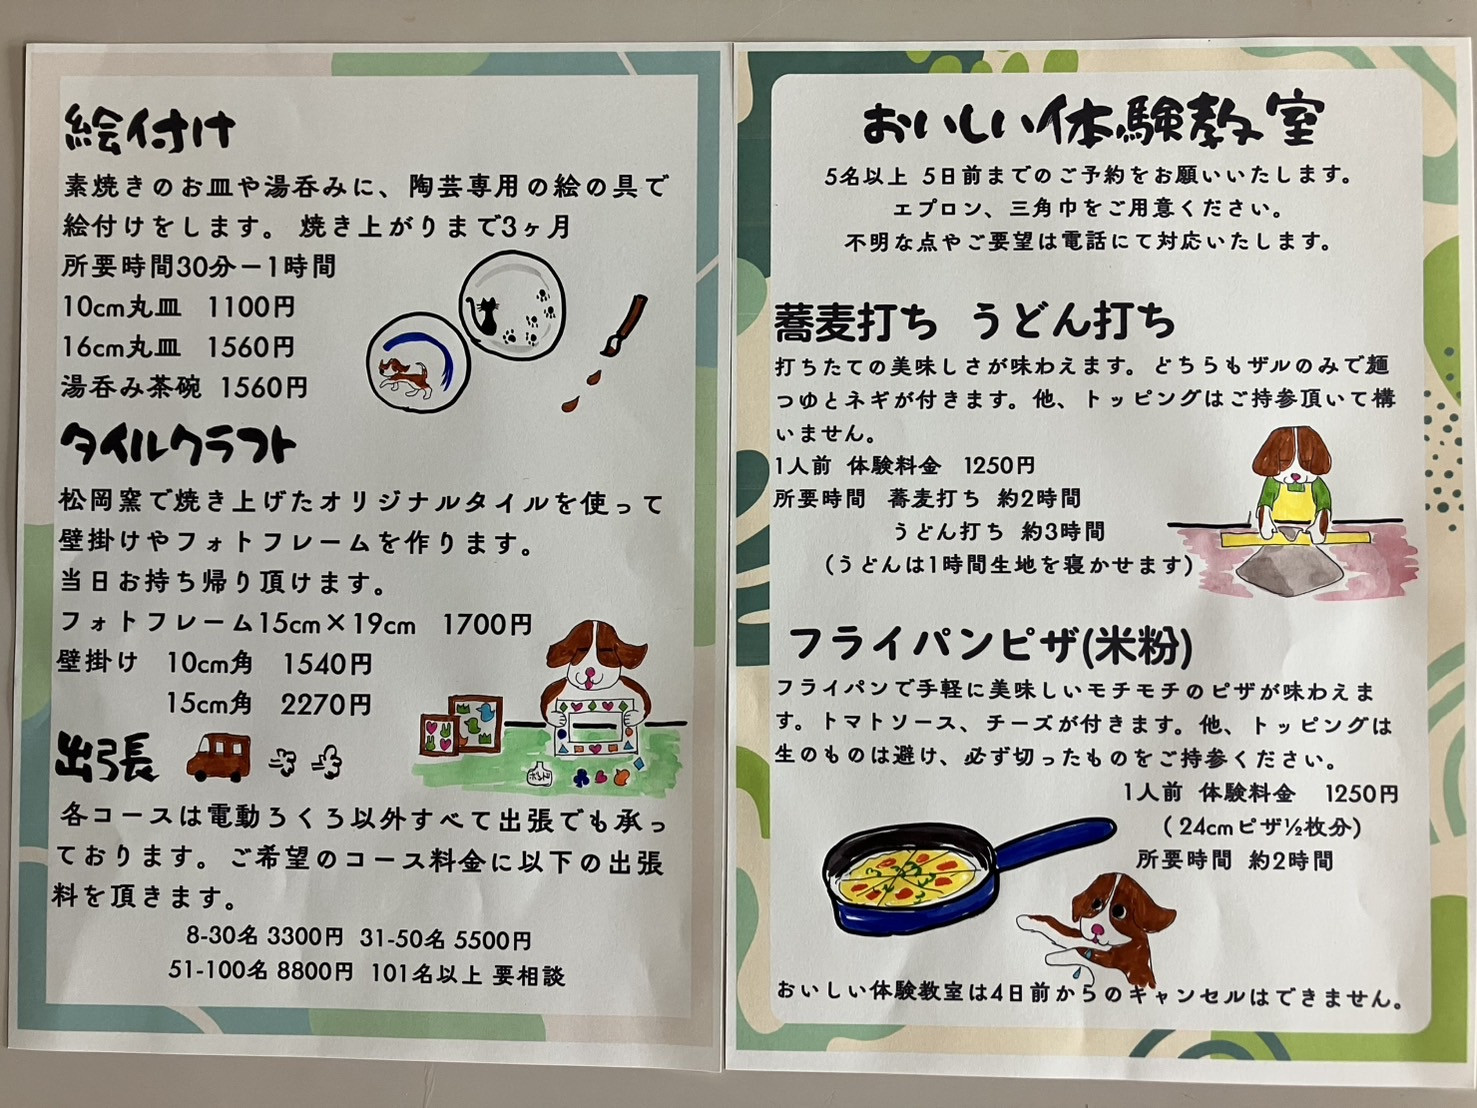 絵付け
素焼きのお皿や湯呑みに、陶芸専用の絵の具で
絵付けをします。 焼き上がりまで3ヶ月
所要時間30分－1時間
10cm丸皿 1100円
16cm丸皿 1560円
湯呑み茶碗 1560円
タイルクラフト
松岡窯で焼き上げたオリジナルタイルを使って
壁掛けやフォトフレームを作ります。
当日お持ち帰り頂けます。
フォトフレーム15cm×19cm 1700円
壁掛け 10cm角 1540円
15cm角 2270円
ボンド
出張
各コースは電動ろくろ以外すべて出張でも承っ
ております。ご希望のコース料金に以下の出張
料を頂きます。
8-30名 3300円 31-50名 5500円
51-100名 8800円 101名以上 要相談
おいしい体験教室
5名以上 5日前までのご予約をお願いいたします。
エプロン、三角巾をご用意ください。
不明な点やご要望は電話にて対応いたします。
蕎麦打ち うどん打ち
打ちたての美味しさが味わえます。どちらもザルのみで麺
つゆとネギが付きます。他、トッピングはご持参頂いて構
いません。
1人前 体験料金 1250円
所要時間 蕎麦打ち 約2時間
うどん打ち 約3時間
(うどんは1時間生地を寝かせます)
フライパンピザ(米粉)
フライパンで手軽に美味しいモチモチのピザが味わえま
す。トマトソース、チーズが付きます。他、トッピングは
生のものは避け、必ず切ったものをご持参ください。
1人前 体験料金 1250円
( 24cmピザ½枚分)
所要時間 約2時間
おいしい体験教室は4日前からのキャンセルはできません。